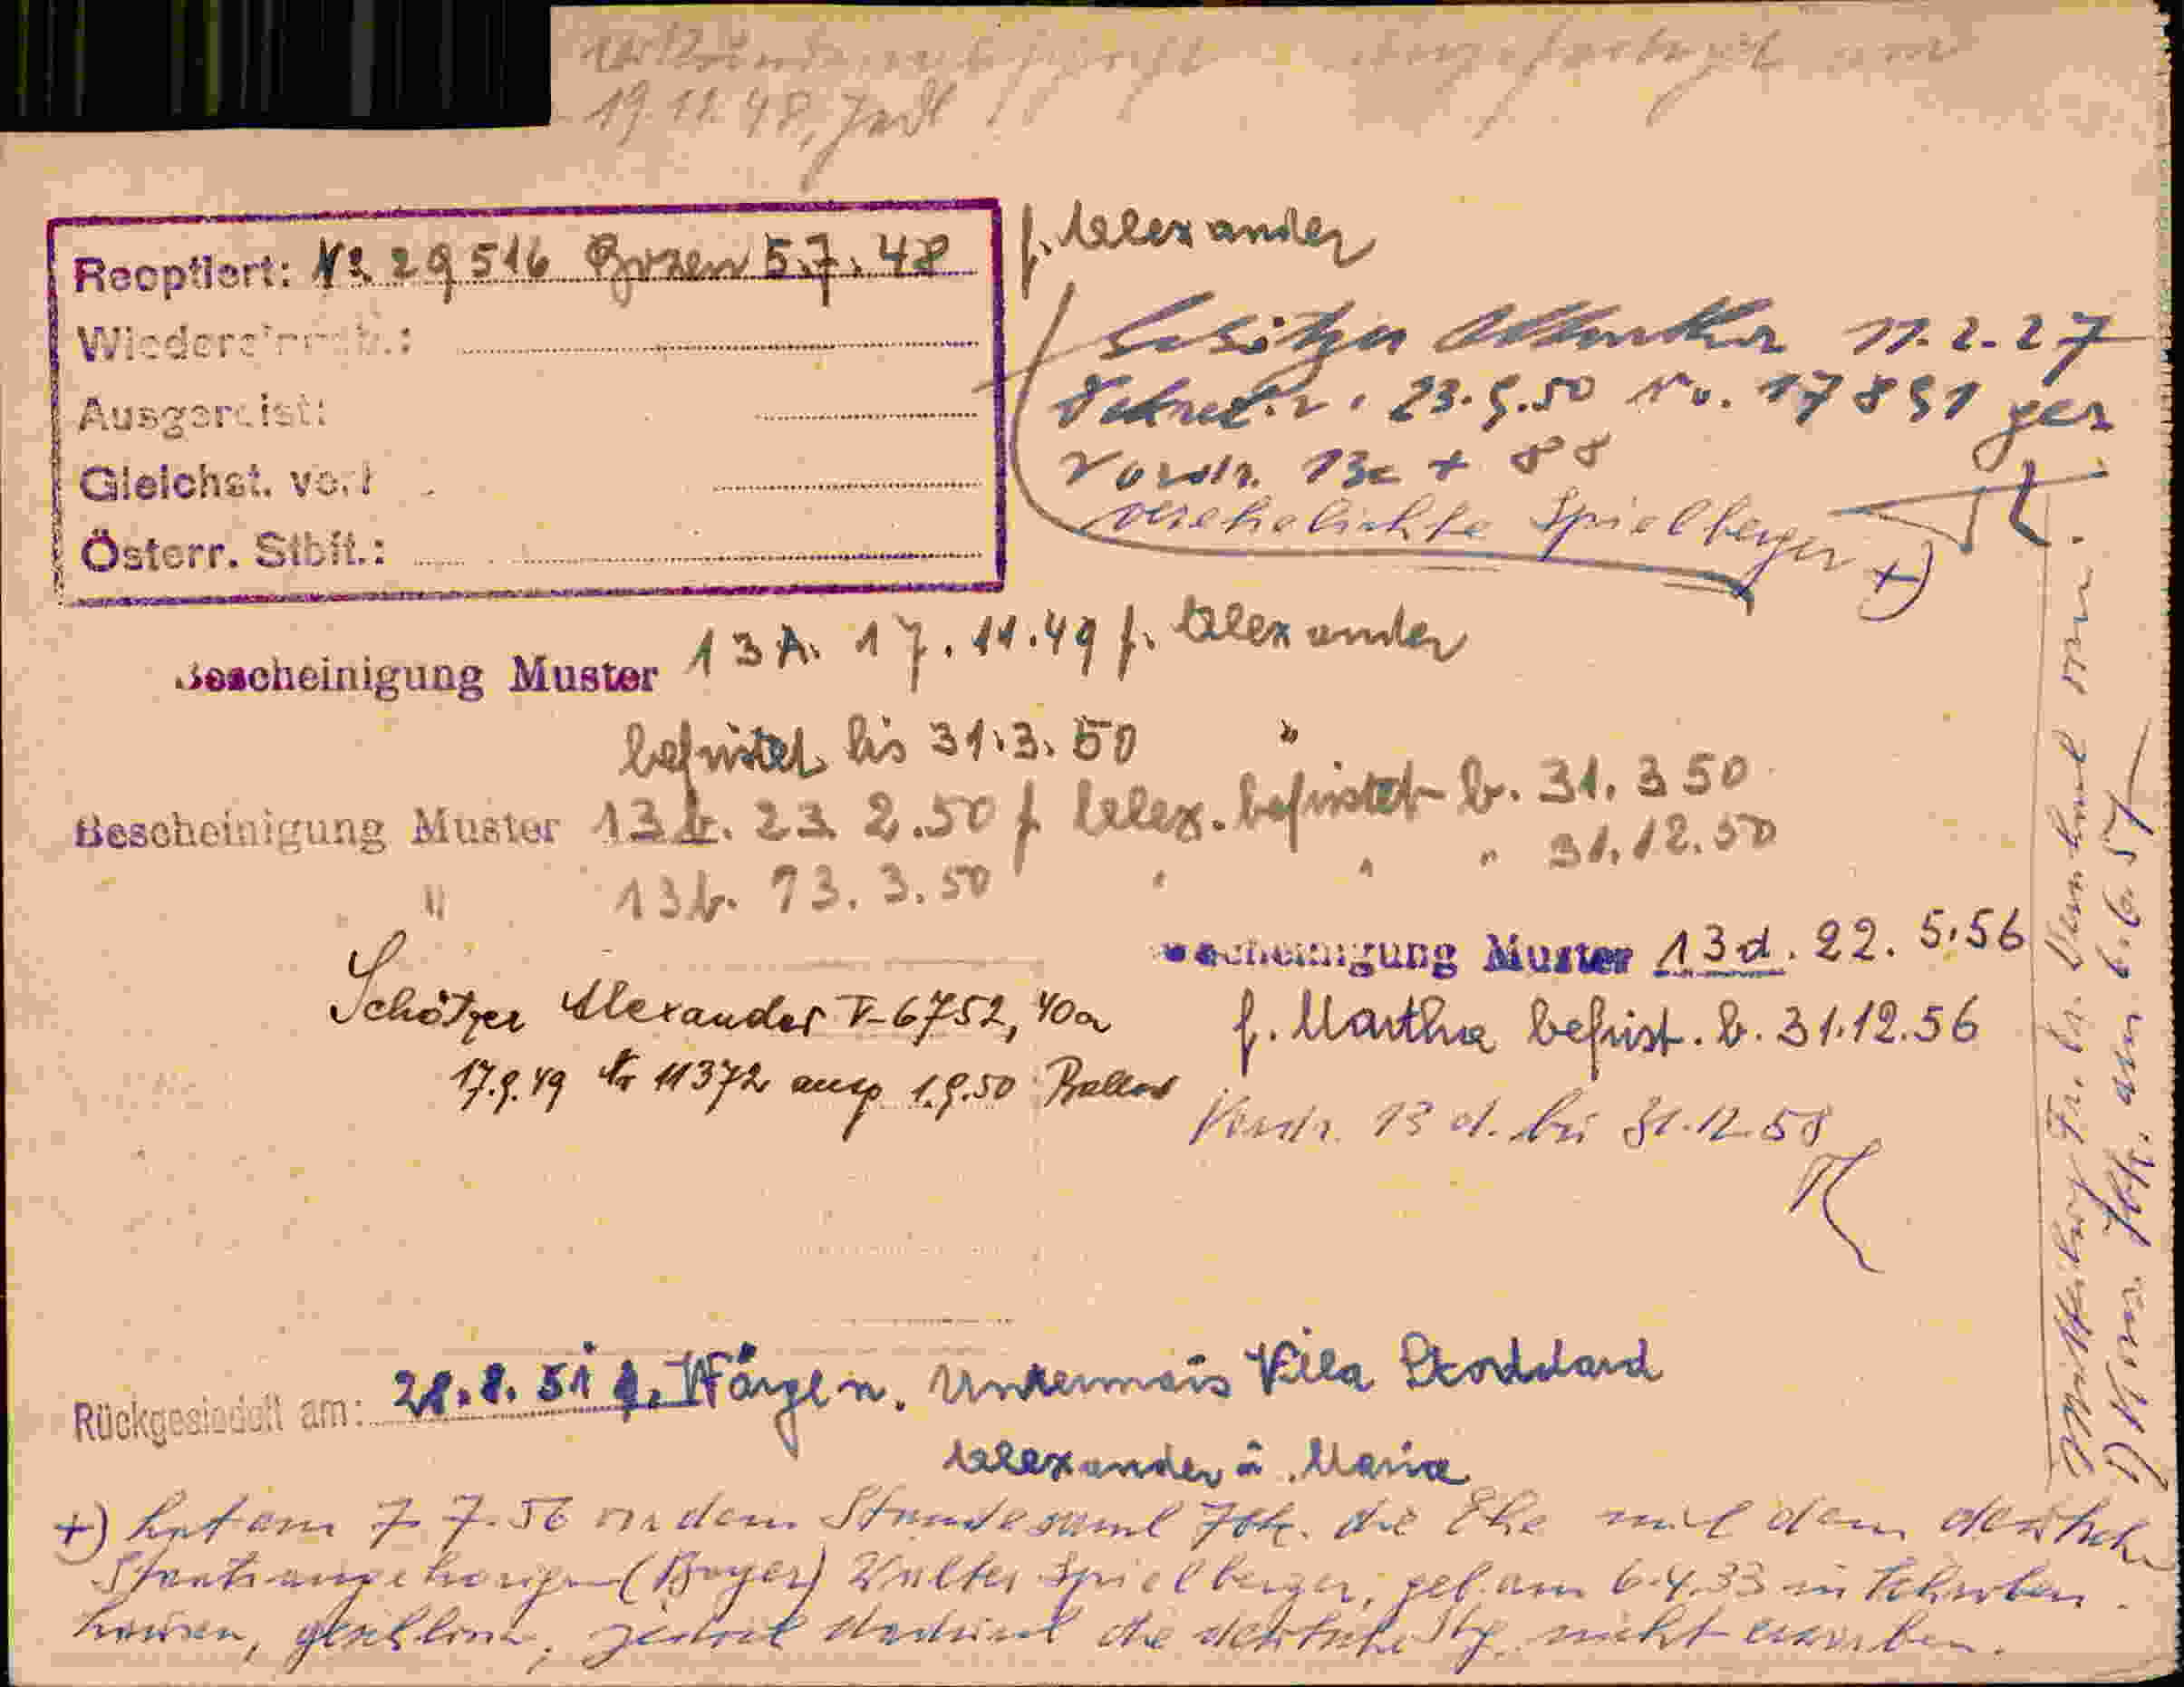 angefertigt am
19.11.48, Jadl
Reoptiert: No. 29516 Bozen 5.7.48 f. Alexander
Wiedereinb.:
Ausgereist:
Gleichst. v.
Österr. Stbft.:
Martha 11.2.27
23.9.50 No. 17891
Vordr. 13c + 88
verehelichte Spielberger +)
Bescheinigung Muster 13A. 17.11.49 f. Alexander
befristet bis 31.3.50 "
Bescheinigung Muster 13b. 23 2.50 f. Alex. befristet b. 31.3 50
" 13b. 13.3.50 " " " 31.12.50
Bescheinigung Muster 13d. 22.5.56
f. Martha befrist. b. 31.12.56
Vordr. 13 d. bis 31.12.58
Schötzer Alexander V-6752, 40a
17.9.49 Nr 11372 ausg. 1.9.50
Rückgesiedelt am: 28.8.51 f. Wörgl n. Untermais Villa Stoddard
Alexander u. Maria
+) hat am 7.7.56 vor dem Standesamt Ibk. die Ehe mit dem deutschen
Staatsangehörigen (Bayer) Walter Spielberger, geb. am 6.4.33 in Schroben-
hausen, geschlossen, jedoch dadurch die deutsche Stg. nicht erworben.
Mitteilung Fr. Dr. von
Ibk. am 6.6.57